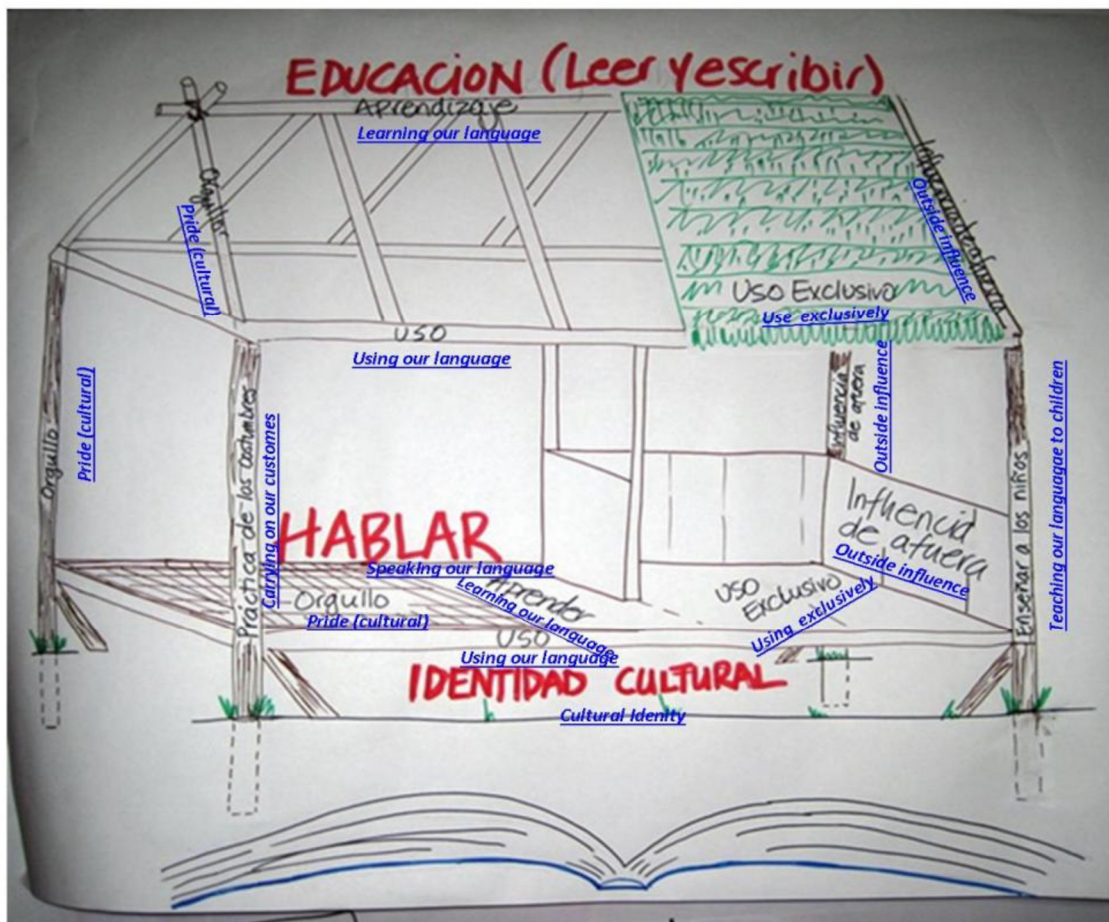 EDUCACION (Leer y escribir)
Aprendizaje
Learning our language
Orgullo
Pride (cultural)
Influencias de afuera
Outside influence
Uso Exclusivo
Use exclusively
USO
Using our language
Orgullo
Pride (cultural)
Práctica de las costumbres
Carrying on our customes
Influencia
de afuera
Outside influence
Enseñar a los niños
Teaching our languagae to children
HABLAR
Speaking our language
Influencia
de afuera
Outside influence
Orgullo
Pride (cultural)
Aprender
Learning our language
USO
Exclusivo
Using exclusively
USO
Using our language
IDENTIDAD CULTURAL
Cultural Idenity